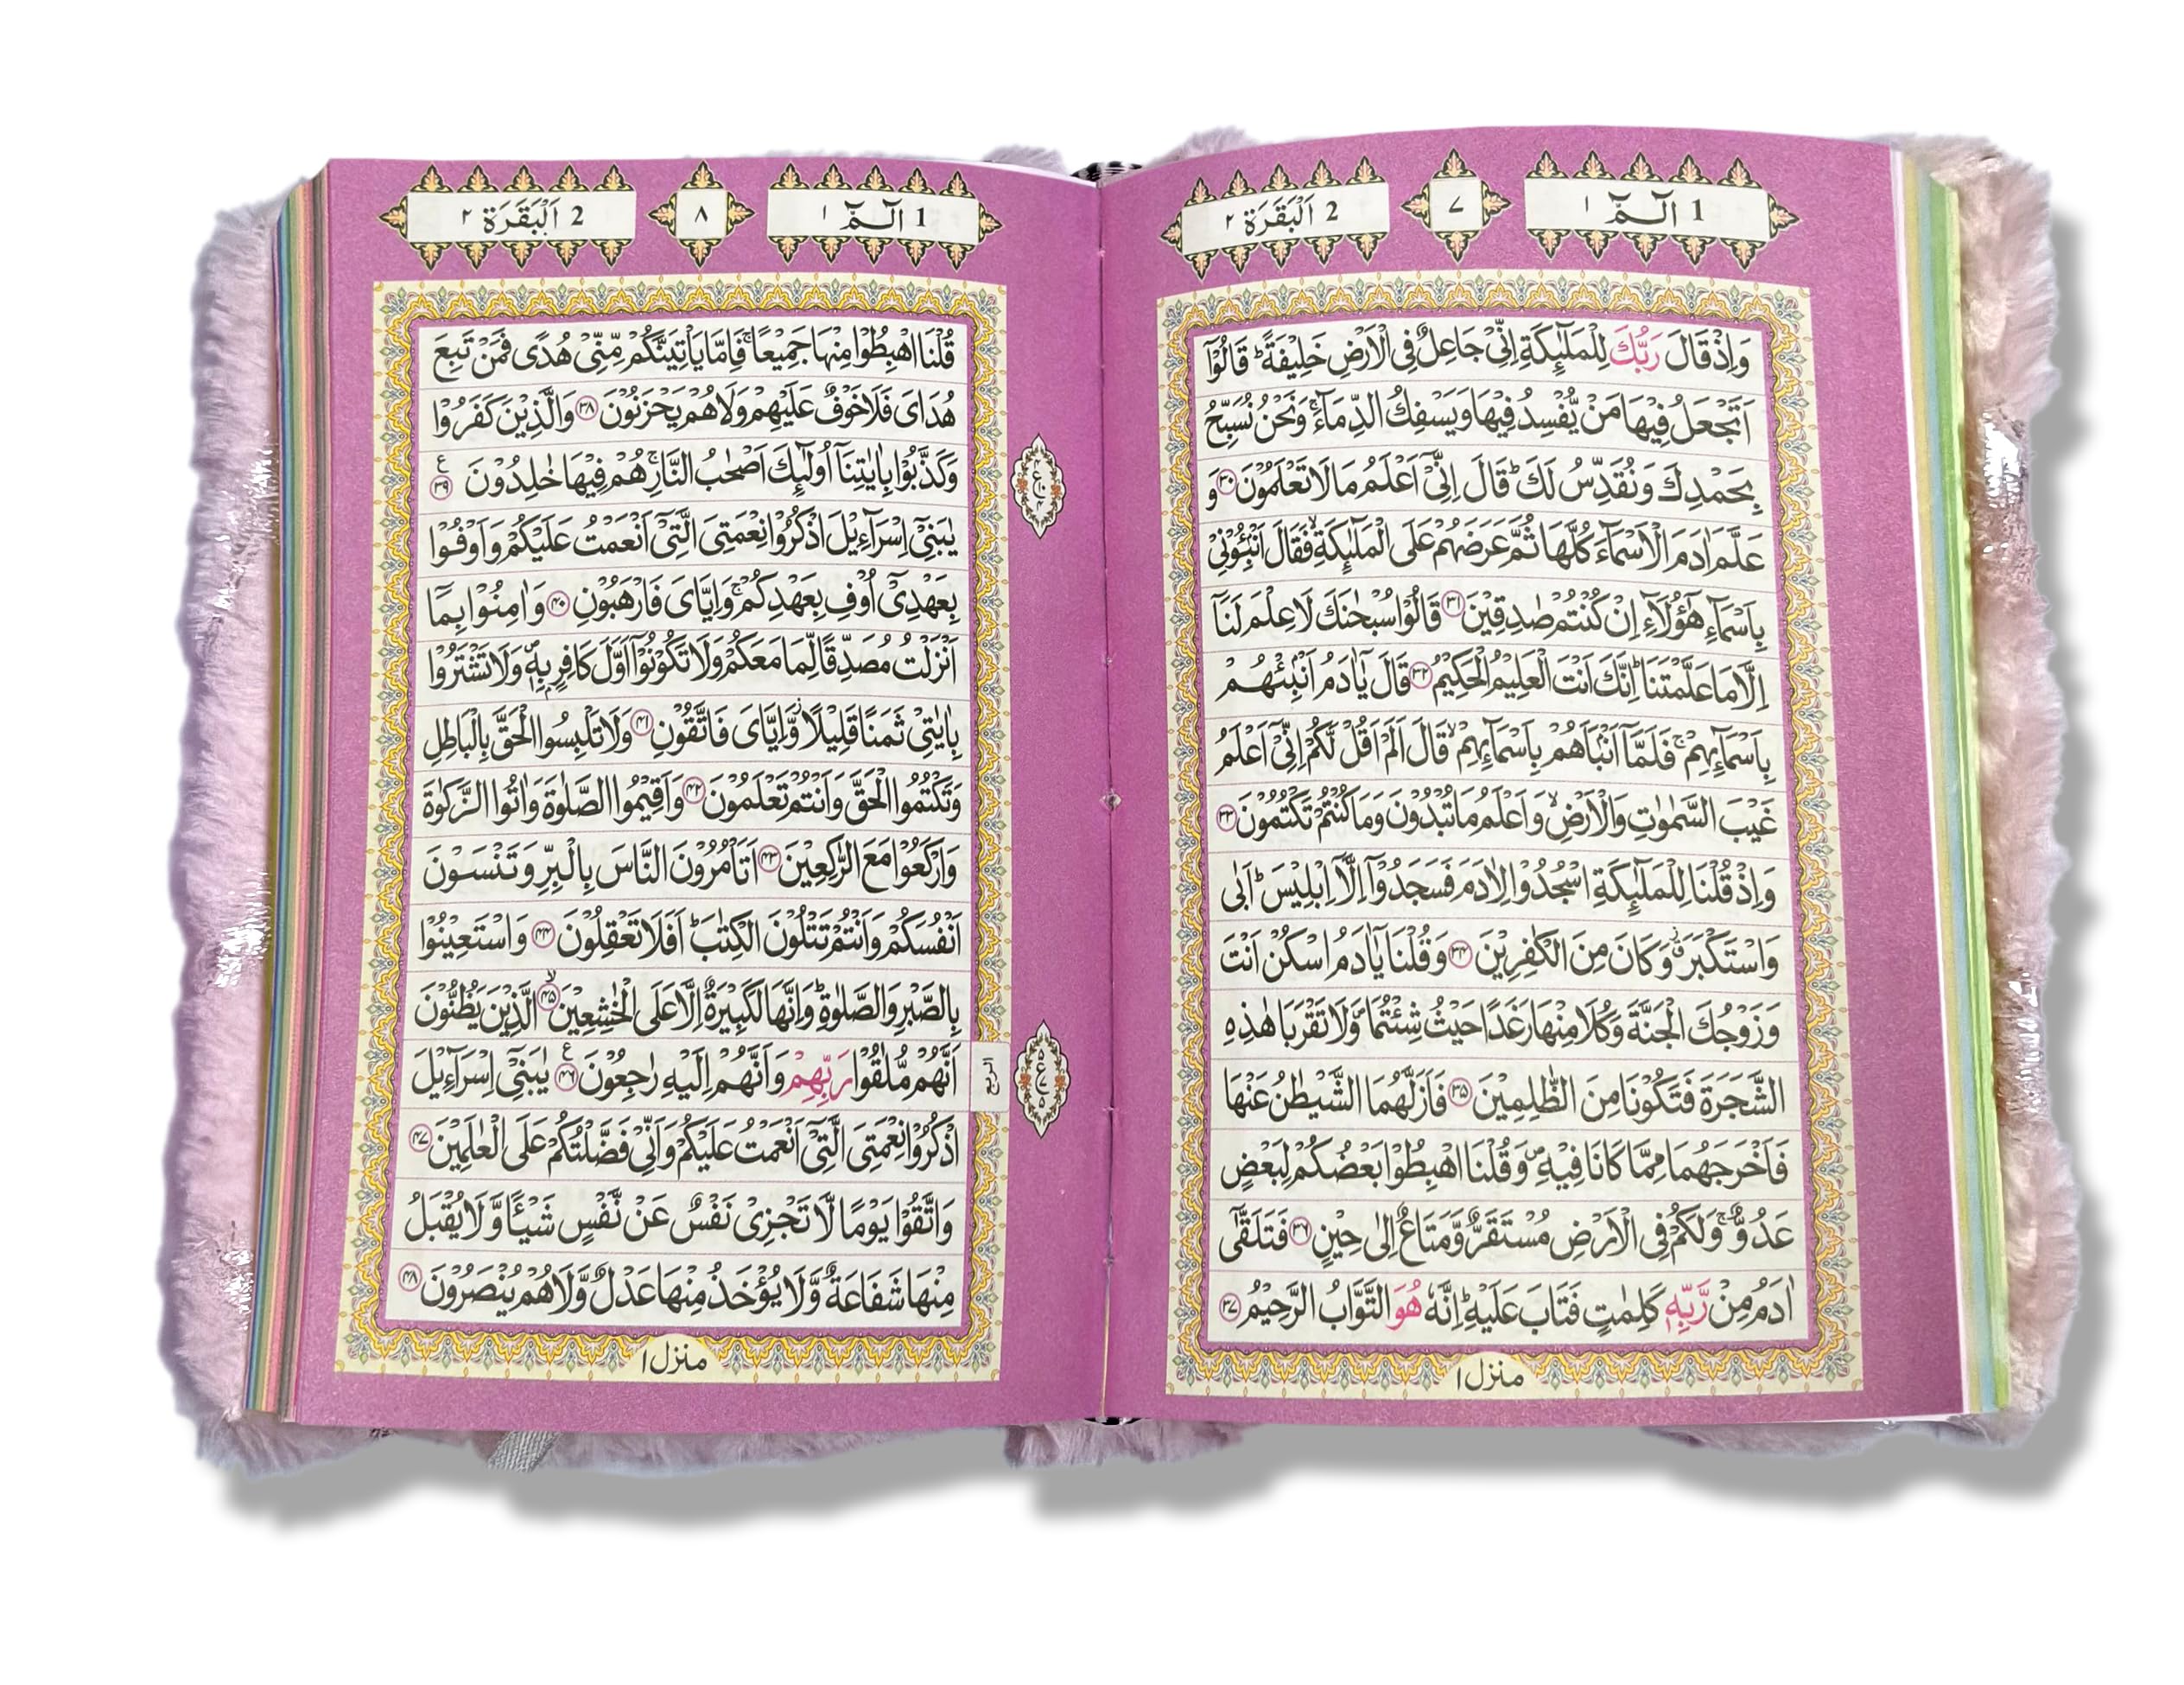 1 الٓمّٓ ١
٧
2 اَلْبَقَرَة ٢
وَاِذْ قَالَ رَبُّكَ لِلْمَلٰٓئِكَةِ اِنِّیْ جَاعِلٌ فِی الْاَرْضِ خَلِیْفَةً ؕ قَالُوْۤا
اَتَجْعَلُ فِیْهَا مَنْ یُّفْسِدُ فِیْهَا وَیَسْفِكُ الدِّمَآءَ ۚ وَنَحْنُ نُسَبِّحُ
بِحَمْدِكَ وَنُقَدِّسُ لَكَ ؕ قَالَ اِنِّیْۤ اَعْلَمُ مَا لَا تَعْلَمُوْنَ ۝۳۰ وَ
عَلَّمَ اٰدَمَ الْاَسْمَآءَ كُلَّهَا ثُمَّ عَرَضَهُمْ عَلَی الْمَلٰٓئِكَةِ ۙ فَقَالَ اَنْۢبِـُٔوْنِیْ
بِاَسْمَآءِ هٰۤؤُلَآءِ اِنْ كُنْتُمْ صٰدِقِیْنَ ۝۳۱ قَالُوْا سُبْحٰنَكَ لَا عِلْمَ لَنَاۤ
اِلَّا مَا عَلَّمْتَنَا ؕ اِنَّكَ اَنْتَ الْعَلِیْمُ الْحَكِیْمُ ۝۳۲ قَالَ یٰۤاٰدَمُ اَنْۢبِئْهُمْ
بِاَسْمَآئِهِمْ ۚ فَلَمَّاۤ اَنْۢبَاَهُمْ بِاَسْمَآئِهِمْ ۙ قَالَ اَلَمْ اَقُلْ لَّكُمْ اِنِّیْۤ اَعْلَمُ
غَیْبَ السَّمٰوٰتِ وَالْاَرْضِ ۙ وَاَعْلَمُ مَا تُبْدُوْنَ وَمَا كُنْتُمْ تَكْتُمُوْنَ ۝۳۳
وَاِذْ قُلْنَا لِلْمَلٰٓئِكَةِ اسْجُدُوْا لِاٰدَمَ فَسَجَدُوْۤا اِلَّاۤ اِبْلِیْسَ ؕ اَبٰی
وَاسْتَكْبَرَ ؗ وَكَانَ مِنَ الْكٰفِرِیْنَ ۝۳۴ وَقُلْنَا یٰۤاٰدَمُ اسْكُنْ اَنْتَ
وَزَوْجُكَ الْجَنَّةَ وَكُلَا مِنْهَا رَغَدًا حَیْثُ شِئْتُمَا ۪ وَلَا تَقْرَبَا هٰذِهِ
الشَّجَرَةَ فَتَكُوْنَا مِنَ الظّٰلِمِیْنَ ۝۳۵ فَاَزَلَّهُمَا الشَّیْطٰنُ عَنْهَا
فَاَخْرَجَهُمَا مِمَّا كَانَا فِیْهِ ۪ وَقُلْنَا اهْبِطُوْا بَعْضُكُمْ لِبَعْضٍ
عَدُوٌّ ۚ وَلَكُمْ فِی الْاَرْضِ مُسْتَقَرٌّ وَّمَتَاعٌ اِلٰی حِیْنٍ ۝۳۶ فَتَلَقّٰۤی
اٰدَمُ مِنْ رَّبِّهٖ كَلِمٰتٍ فَتَابَ عَلَیْهِ ؕ اِنَّهٗ هُوَ التَّوَّابُ الرَّحِیْمُ ۝۳۷
منزل ١
1 الٓمّٓ ١
٨
2 اَلْبَقَرَة ٢
قُلْنَا اهْبِطُوْا مِنْهَا جَمِیْعًا ۚ فَاِمَّا یَاْتِیَنَّكُمْ مِّنِّیْ هُدًی فَمَنْ تَبِعَ
هُدَایَ فَلَا خَوْفٌ عَلَیْهِمْ وَلَا هُمْ یَحْزَنُوْنَ ۝۳۸ وَالَّذِیْنَ كَفَرُوْا
وَكَذَّبُوْا بِاٰیٰتِنَاۤ اُولٰٓئِكَ اَصْحٰبُ النَّارِ ۚ هُمْ فِیْهَا خٰلِدُوْنَ ۝۳۹ ع
یٰبَنِیْۤ اِسْرَآءِیْلَ اذْكُرُوْا نِعْمَتِیَ الَّتِیْۤ اَنْعَمْتُ عَلَیْكُمْ وَاَوْفُوْا
بِعَهْدِیْۤ اُوْفِ بِعَهْدِكُمْ ۚ وَاِیَّایَ فَارْهَبُوْنِ ۝۴۰ وَاٰمِنُوْا بِمَاۤ
اَنْزَلْتُ مُصَدِّقًا لِّمَا مَعَكُمْ وَلَا تَكُوْنُوْۤا اَوَّلَ كَافِرٍۭ بِهٖ ۪ وَلَا تَشْتَرُوْا
بِاٰیٰتِیْ ثَمَنًا قَلِیْلًا ؗ وَّاِیَّایَ فَاتَّقُوْنِ ۝۴۱ وَلَا تَلْبِسُوا الْحَقَّ بِالْبَاطِلِ
وَتَكْتُمُوا الْحَقَّ وَاَنْتُمْ تَعْلَمُوْنَ ۝۴۲ وَاَقِیْمُوا الصَّلٰوةَ وَاٰتُوا الزَّكٰوةَ
وَارْكَعُوْا مَعَ الرّٰكِعِیْنَ ۝۴۳ اَتَاْمُرُوْنَ النَّاسَ بِالْبِرِّ وَتَنْسَوْنَ
اَنْفُسَكُمْ وَاَنْتُمْ تَتْلُوْنَ الْكِتٰبَ ؕ اَفَلَا تَعْقِلُوْنَ ۝۴۴ وَاسْتَعِیْنُوْا
بِالصَّبْرِ وَالصَّلٰوةِ ؕ وَاِنَّهَا لَكَبِیْرَةٌ اِلَّا عَلَی الْخٰشِعِیْنَ ۝۴۵ ۙ الَّذِیْنَ یَظُنُّوْنَ
اَنَّهُمْ مُّلٰقُوْا رَبِّهِمْ وَاَنَّهُمْ اِلَیْهِ رٰجِعُوْنَ ۝۴۶ ع یٰبَنِیْۤ اِسْرَآءِیْلَ
الربع
اذْكُرُوْا نِعْمَتِیَ الَّتِیْۤ اَنْعَمْتُ عَلَیْكُمْ وَاَنِّیْ فَضَّلْتُكُمْ عَلَی الْعٰلَمِیْنَ ۝۴۷
وَاتَّقُوْا یَوْمًا لَّا تَجْزِیْ نَفْسٌ عَنْ نَّفْسٍ شَیْـًٔا وَّلَا یُقْبَلُ
مِنْهَا شَفَاعَةٌ وَّلَا یُؤْخَذُ مِنْهَا عَدْلٌ وَّلَا هُمْ یُنْصَرُوْنَ ۝۴۸
منزل ١